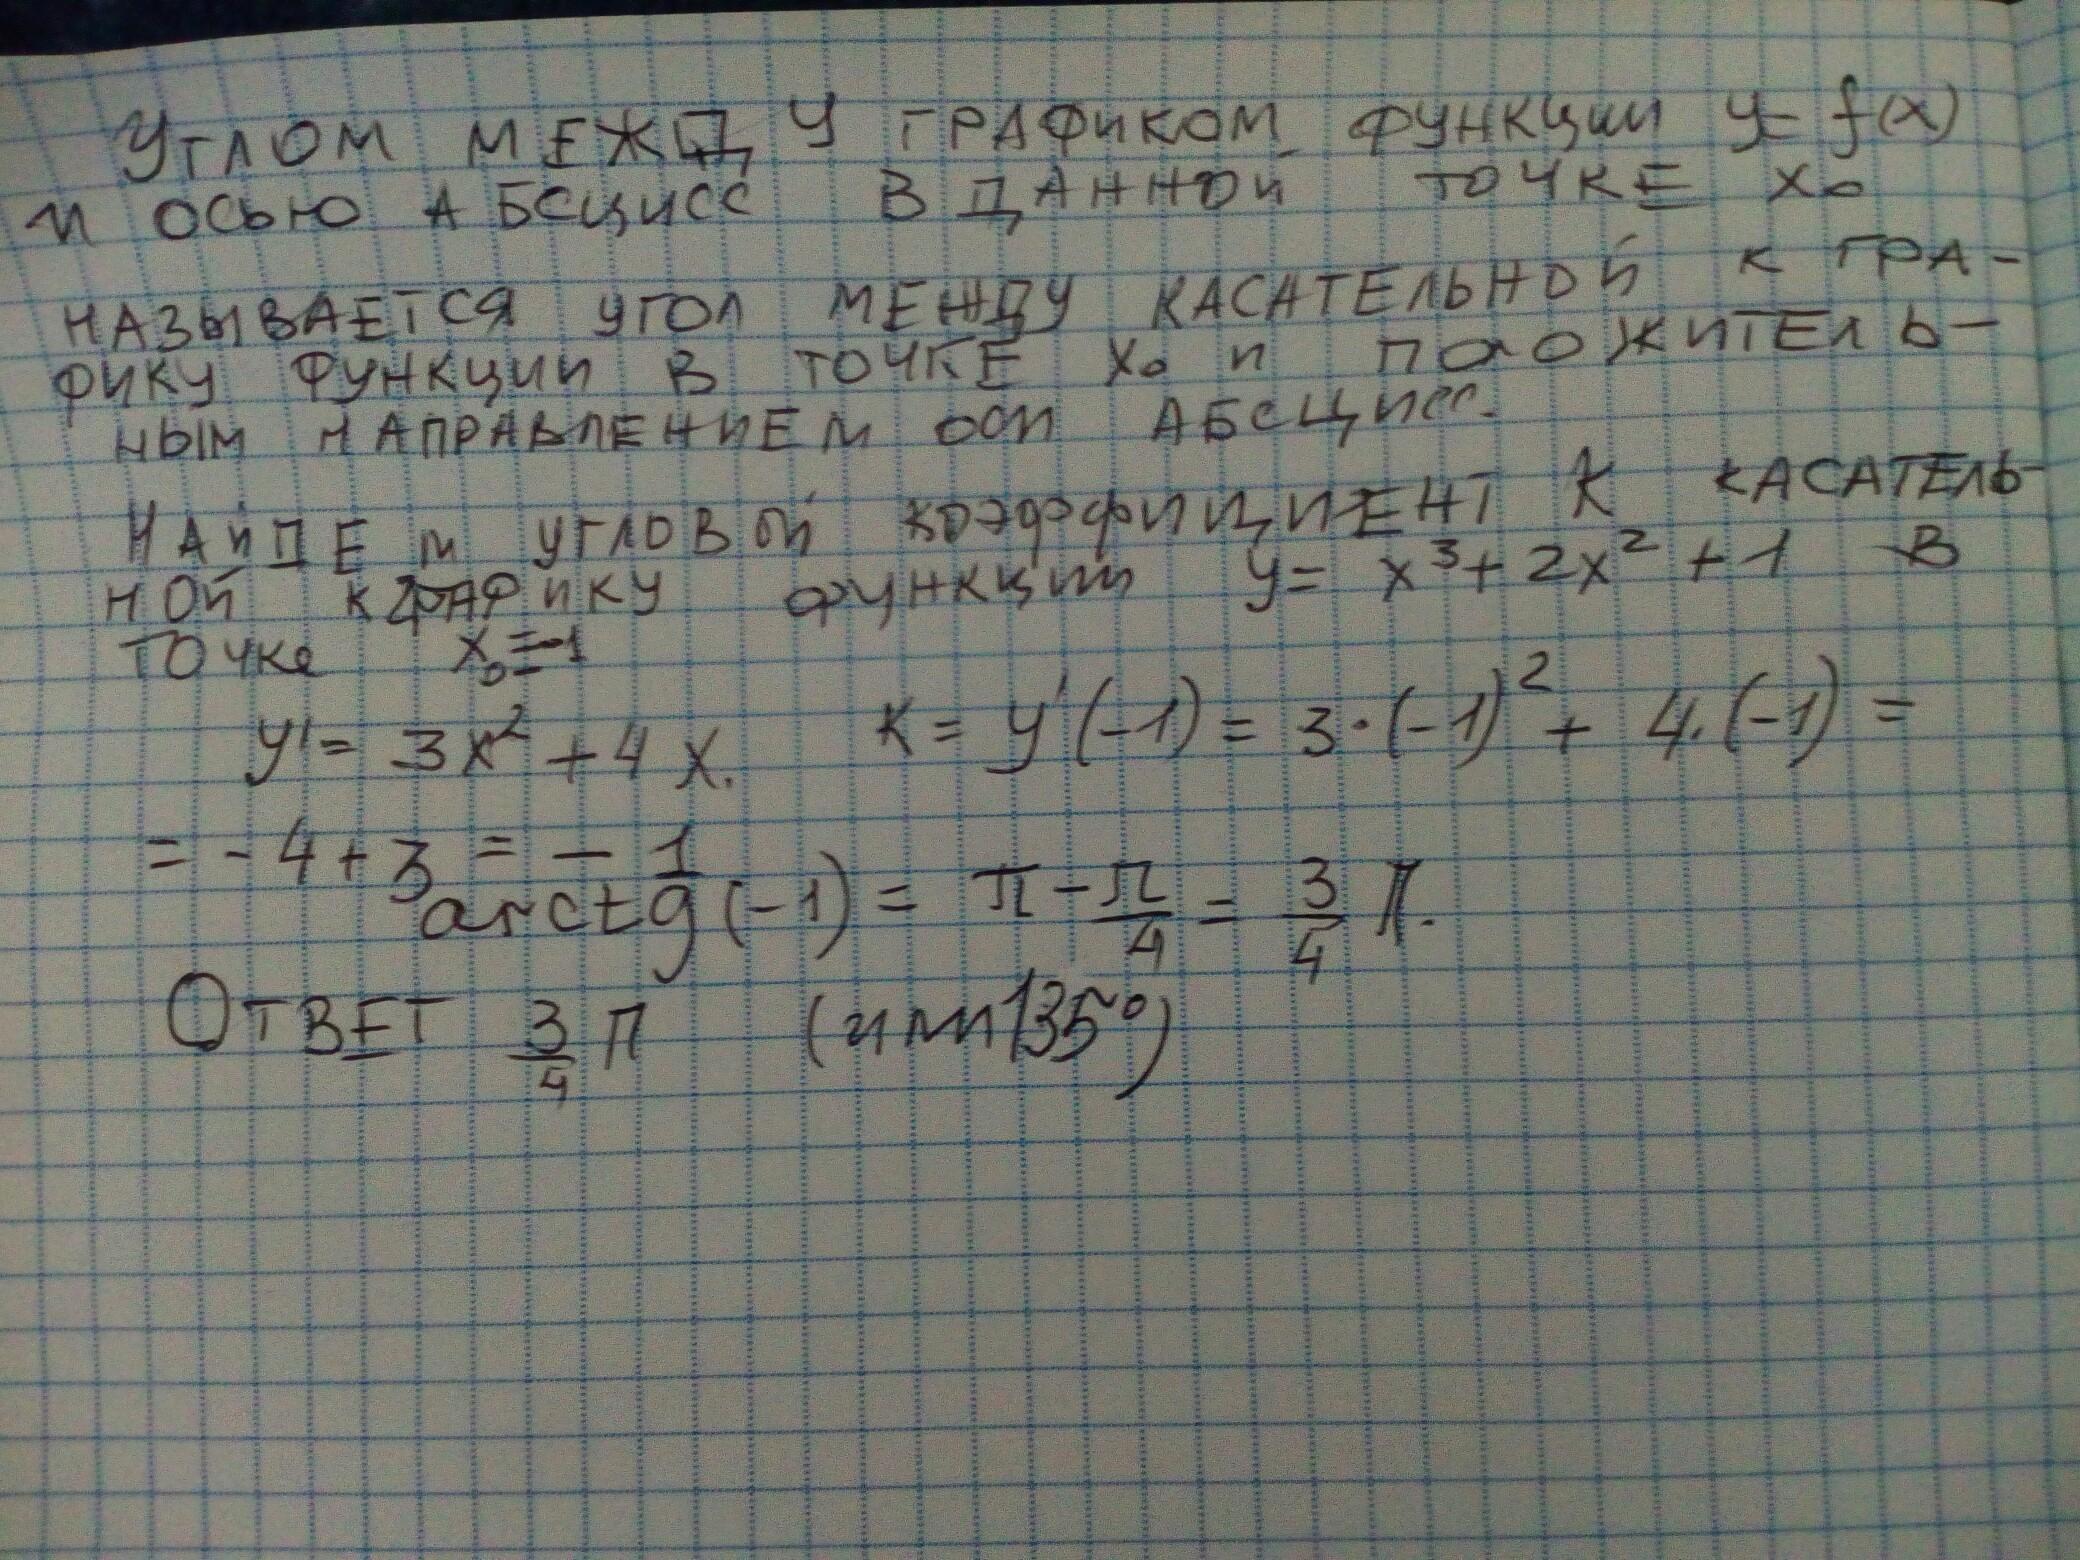 УГЛОМ МЕЖДУ ГРАФИКОМ ФУНКЦИИ y = f(x)
И ОСЬЮ АБСЦИСС В ДАННОЙ ТОЧКЕ x₀
НАЗЫВАЕТСЯ УГОЛ МЕЖДУ КАСАТЕЛЬНОЙ К ГРА-
ФИКУ ФУНКЦИИ В ТОЧКЕ x₀ И ПОЛОЖИТЕЛЬ-
НЫМ НАПРАВЛЕНИЕМ ОСИ АБСЦИСС.
НАЙДЕМ УГЛОВОЙ КОЭФФИЦИЕНТ К КАСАТЕЛЬ-
НОЙ К ГРАФИКУ ФУНКЦИИ y = x³ + 2x² + 1 В
ТОЧКе x₀ = -1
y' = 3x² + 4x. K = y'(-1) = 3·(-1)² + 4·(-1) =
= -4 + 3 = -1
arctg(-1) = π - π/4 = 3/4 π.
ОТВЕТ 3/4 π (или 135°)